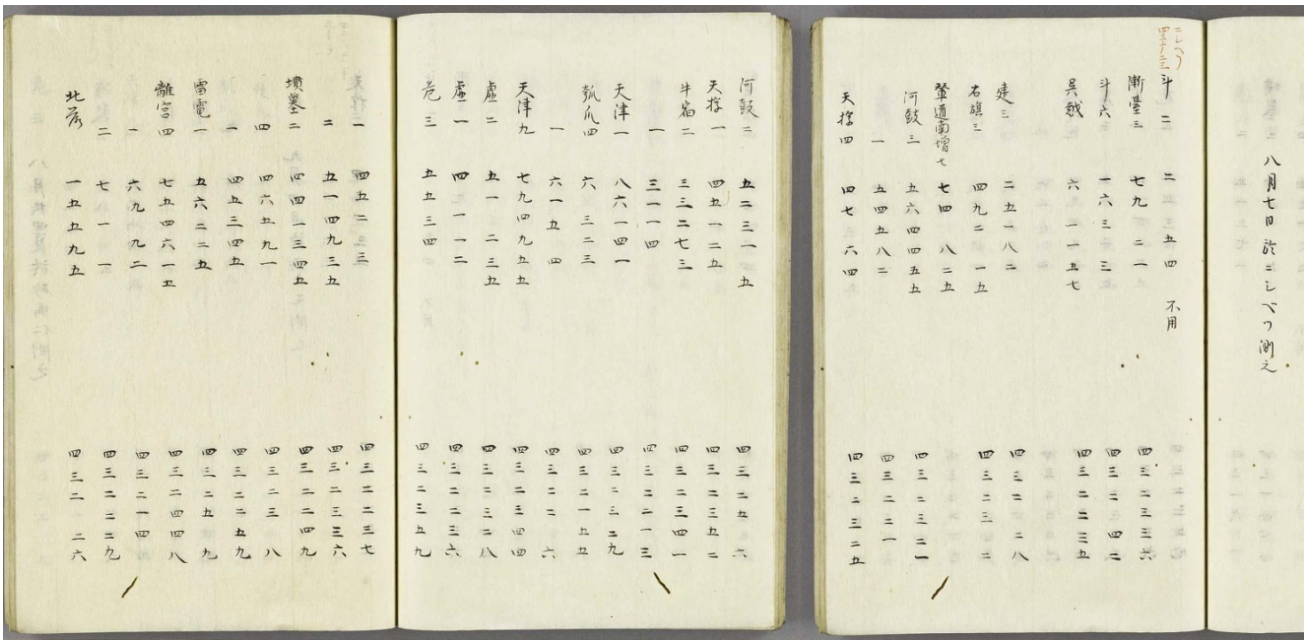 八月七日於ニシベツ測之
ニシベツ
斗 二 二 五三五四 不用
漸臺三 七九 二一 四三二三三六
斗六 一六三三 四三二 四二
呉越 六 一一五七 四三二二三五
建三 二五一八二 四三二 二八
右旗三 四九二 一五 四三二三四二
輦道南増七 七四 八二五
河鼓三 五六四四五五 四三二三二一
一 五四五八二 四三二 二一
天桴四 四七 六四 四三二三二五
河鼓二 五二三一四五 四三二五 六
天桴一 四五一二五 四三二三五二
牛宿二 三三二七三 四三二三四一
一 三一一四 四三二二一三
天津一 八六一四一 四三二三二九
瓠瓜四 六 三二三 四三二一五五
一 六一五 四 四三二二 六
天津九 七九四九五五 四三二三四四
虚二 五一 二三五 四三二三二八
虚一 四 一一二 四三二二三六
危三 五五三四 四三二三五九
一 四五二三三 四三二二三七
二 五一四九三五 四三二三三六
墳墓二 四四一三四五 四三二二四九
四 四六五九一 四三二三 八
一 四五三四五 四三二二五九
雷電一 五六二二五 四三二五 九
離宮四 七五四六一五 四三二四四八
一 六九 九二 四三二一四
二 七一一 一 四三二二二九
北落 一五五九五 四三二一二六